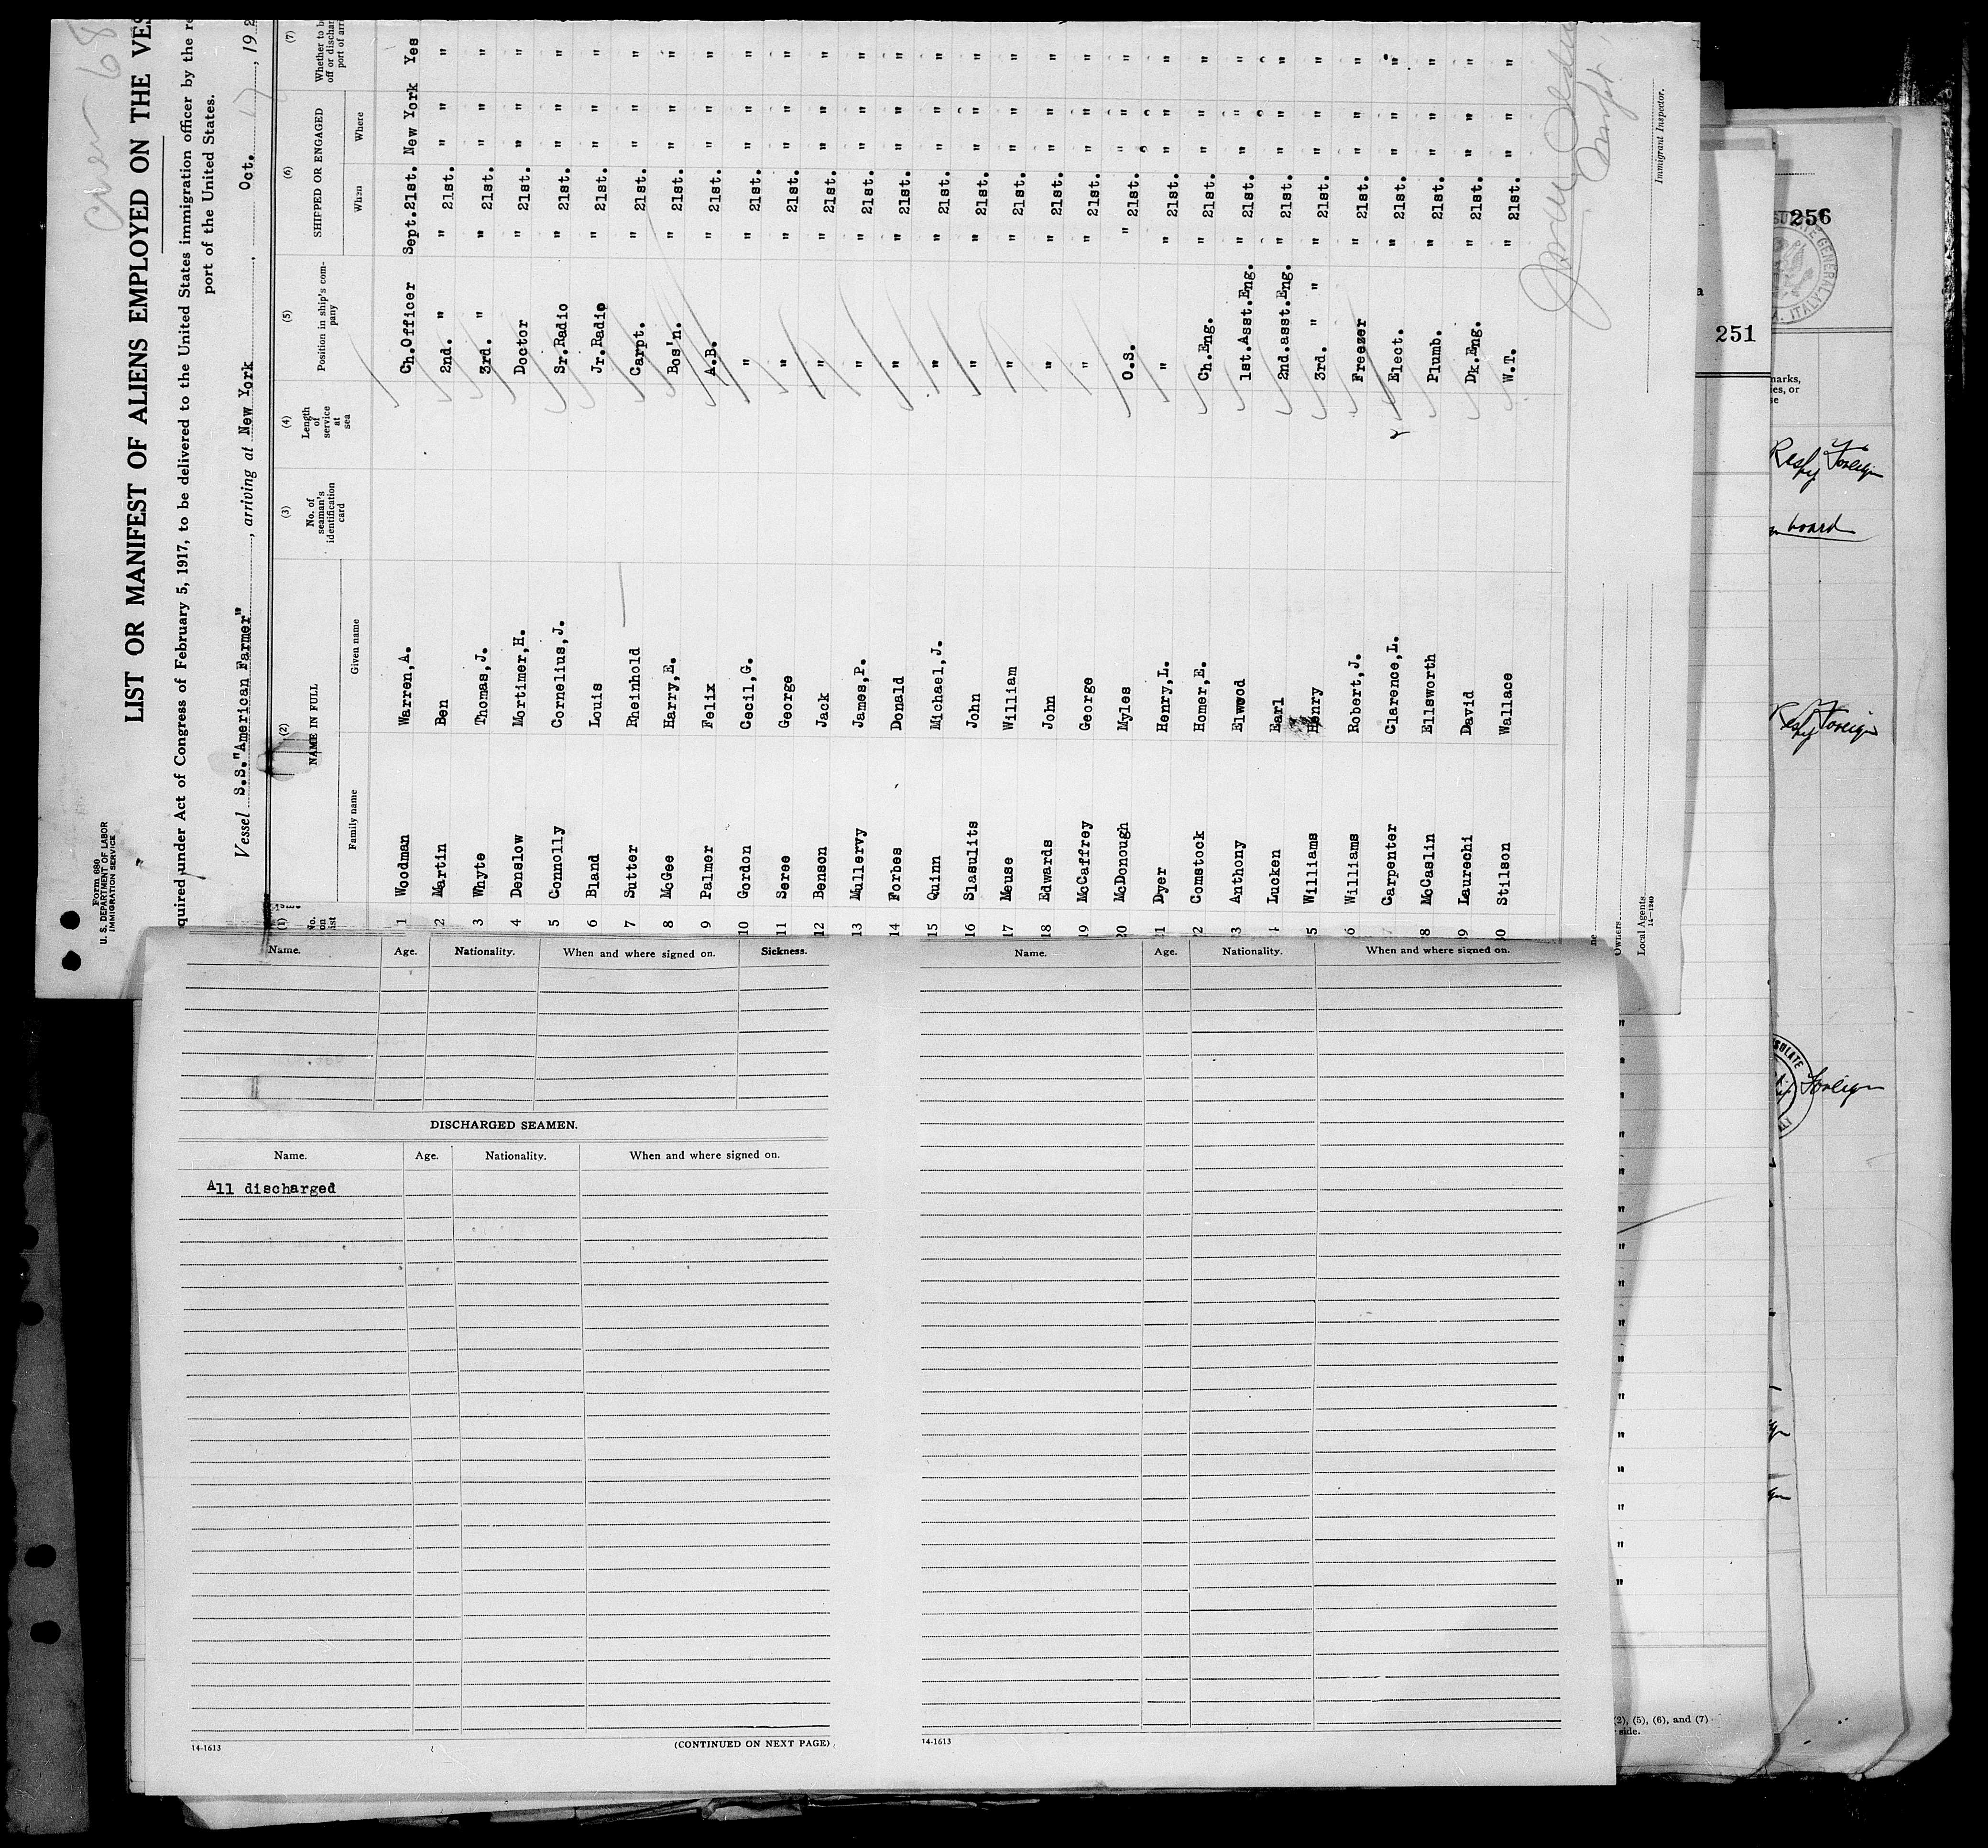 Form 680
U. S. DEPARTMENT OF LABOR
IMMIGRATION SERVICE
LIST OR MANIFEST OF ALIENS EMPLOYED ON THE VES
quired under Act of Congress of February 5, 1917, to be delivered to the United States immigration officer by the re
port of the United States.
Vessel S.S."American Farmer", arriving at New York, Oct. 17, 192
(1) (2) (3) (4) (5) (6) (7)
No. on list NAME IN FULL No. of seaman's identification card Length of service at sea Position in ship's company SHIPPED OR ENGAGED Whether to b off or dischar port of arri
Family name Given name When Where
1 Woodman Warren,A. Ch.Officer Sept.21st. New York Yes
2 Martin Ben 2nd. " " 21st. " " "
3 Whyte Thomas,J. 3rd. " " 21st. " " "
4 Denslow Mortimer,H. Doctor " 21st. " " "
5 Connolly Cornelius,J. Sr.Radio " 21st. " " "
6 Bland Louis Jr.Radio " 21st. " " "
7 Sutter Rheinhold Carpt. " 21st. " " "
8 McGee Harry,E. Bos'n. " 21st. " " "
9 Palmer Felix A.B. " 21st. " " "
10 Gordon Cecil,G. " " 21st. " " "
11 Seree George " " 21st. " " "
12 Benson Jack " " 21st. " " "
13 Mullervy James,P. " " 21st. " " "
14 Forbes Donald " " 21st. " " "
15 Quinn Michael,J. " " 21st. " " "
16 Slasulits John " " 21st. " " "
17 Meuse William " " 21st. " " "
18 Edwards John " " 21st. " " "
19 McCaffrey George " " 21st. " " "
20 McDonough Myles O.S. " 21st. " " "
21 Dyer Henry,L. " " 21st. " " "
22 Comstock Homer,E. Ch.Eng. " 21st. " " "
3 Anthony Elwood 1st.Asst.Eng. " 21st. " " "
4 Lucken Earl 2nd.asst.Eng. " 21st. " " "
5 Williams Henry 3rd. " " " 21st. " " "
6 Williams Robert,J. Freezer " 21st. " " "
7 Carpenter Clarence,L. Elect. " 21st. " " "
8 McCaslin Ellsworth Plumb. " 21st. " " "
9 Laurechi David Dk.Eng. " 21st. " " "
30 Stilson Wallace W.T. " 21st. " " "
Immigrant Inspector.
Owners
Local Agents
14-1240
Name. Age. Nationality. When and where signed on. Sickness.
DISCHARGED SEAMEN.
Name. Age. Nationality. When and where signed on.
All discharged
14-1613
(CONTINUED ON NEXT PAGE)
Name. Age. Nationality. When and where signed on.
14-1613
251
256
GENERAL
ITALY
marks,
es, or
se
Resh Foreign
board
Resh Foreign
SULATE
Foreign
(2), (5), (6), and (7)
side.